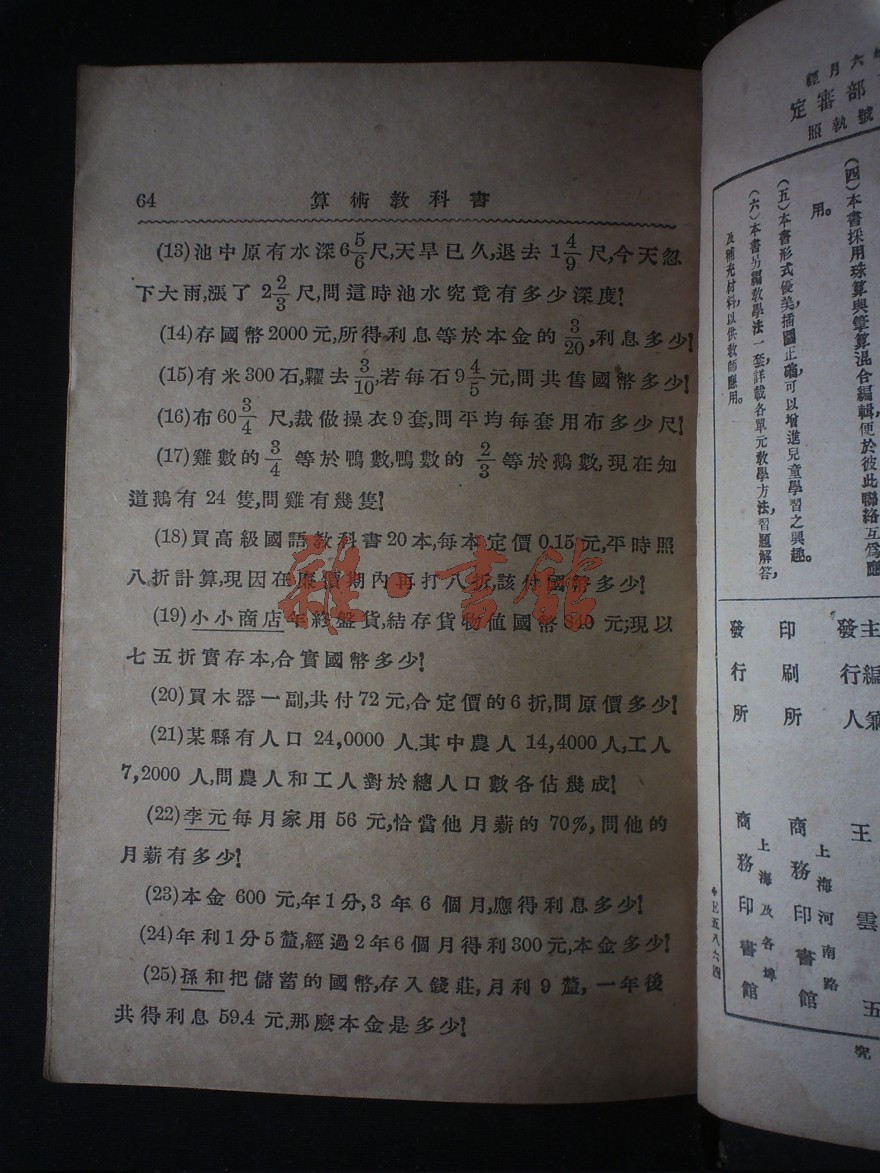 64 算術教科書
(13)池中原有水深6 5/6尺,天旱已久,退去 1 4/9 尺,今天忽
下大雨,漲了 2 2/3 尺,問這時池水究竟有多少深度?
(14)存國幣2000元,所得利息等於本金的 3/20,利息多少?
(15)有米300石,糶去 3/10,若每石9 4/5元,問共售國幣多少?
(16)布60 3/4 尺,裁做操衣9套,問平均每套用布多少尺?
(17)雞數的 3/4 等於鴨數,鴨數的 2/3 等於鵝數,現在知
道鵝有 24 隻,問雞有幾隻?
(18)買高級國語教科書20本,每本定價 0.15元,平時照
八折計算,現因在廉價期內再打八折,該付國幣多少?
(19)小小商店年終盤貨,結存貨物值國幣 元;現以
七五折實存本,合實國幣多少?
(20)買木器一副,共付72元,合定價的6折,問原價多少?
(21)某縣有人口24,0000人.其中農人14,4000人,工人
7,2000人,問農人和工人對於總人口數各佔幾成?
(22)李元每月家用56元,恰當他月薪的70%,問他的
月薪有多少?
(23)本金600元,年1分,3年6個月,應得利息多少?
(24)年利1分5釐,經過2年6個月得利300元,本金多少?
(25)孫和把儲蓄的國幣,存入錢莊,月利9釐,一年後
共得利息59.4元.那麽本金是多少?
雜·書館
六月經
部審定
號執照
(四)本書採用珠算與筆算混合編輯,便於彼此聯絡互爲應
用。
(五)本書形式優美,插圖正確,可以增進兒童學習之興趣。
(六)本書另編教學法一套,詳載各單元教學方法,習題解答,
及補充材料,以供教師應用。
主編兼
發行人 王雲五
印刷所 上海河南路
商務印書館
發行所 上海及各埠
商務印書館
五八六四